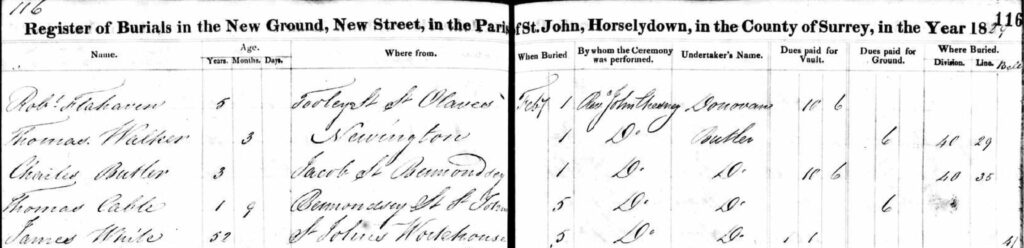 116 116
Register of Burials in the New Ground, New Street, in the Paris of St. John, Horselydown, in the County of Surrey, in the Year 18
Name. Age. Where from. When Buried By whom the Ceremony was performed. Undertaker's Name. Dues paid for Vault. Dues paid for Ground. Where Buried.
Years. Months. Days. Division. Line.
Robt. Flahaven 5 Tooley St St Olaves Feby 1 Revd John Donovan 10 6
Thomas Walker 3 Newington 1 Do. Butler 6 40 29
Charles Butler 3 Jacob St Bermondsey 1 Do. Do. 10 6 40 35
Thomas Cable 1 9 Bermondsey St St Johns 5 Do. Do. 6
James White 52 St Johns Workhouse 5 Do. Do. 1 1